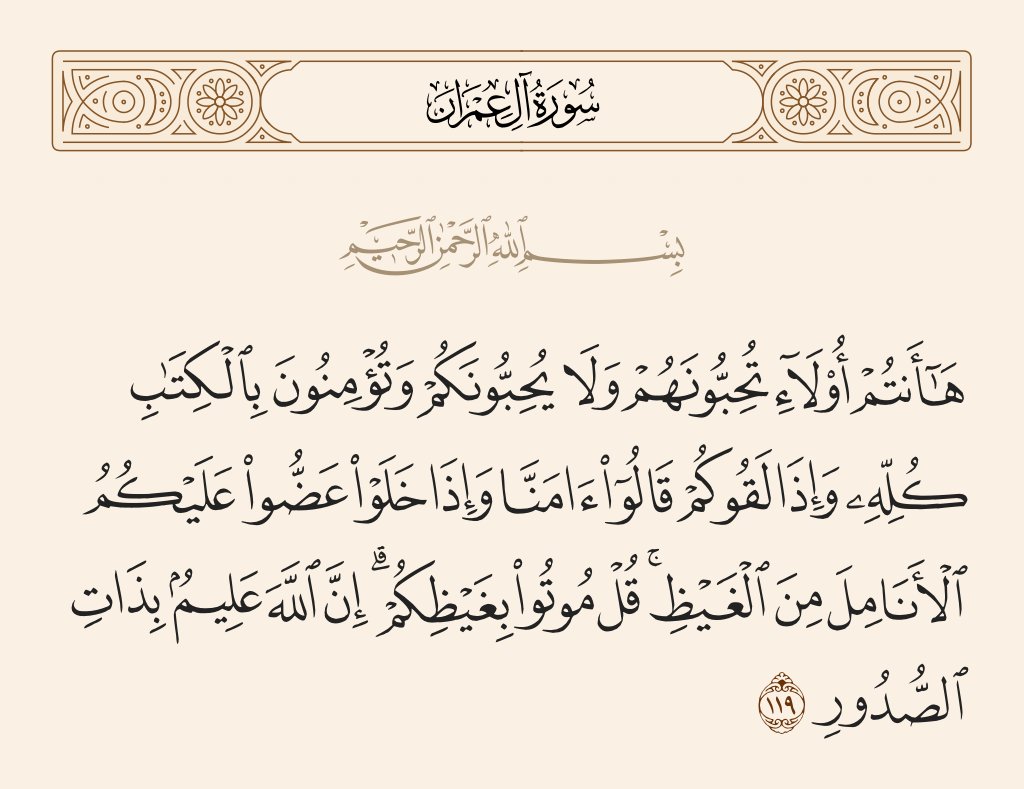 سُورَةُ آلِ عِمْرَانَ
بِسْمِ ٱللَّهِ ٱلرَّحْمَٰنِ ٱلرَّحِيمِ
هَـٰٓأَنتُمْ أُو۟لَآءِ تُحِبُّونَهُمْ وَلَا يُحِبُّونَكُمْ وَتُؤْمِنُونَ بِٱلْكِتَـٰبِ
كُلِّهِۦ وَإِذَا لَقُوكُمْ قَالُوٓا۟ ءَامَنَّا وَإِذَا خَلَوْا۟ عَضُّوا۟ عَلَيْكُمُ
ٱلْأَنَامِلَ مِنَ ٱلْغَيْظِ ۚ قُلْ مُوتُوا۟ بِغَيْظِكُمْ ۗ إِنَّ ٱللَّهَ عَلِيمٌۢ بِذَاتِ
ٱلصُّدُورِ ١١٩